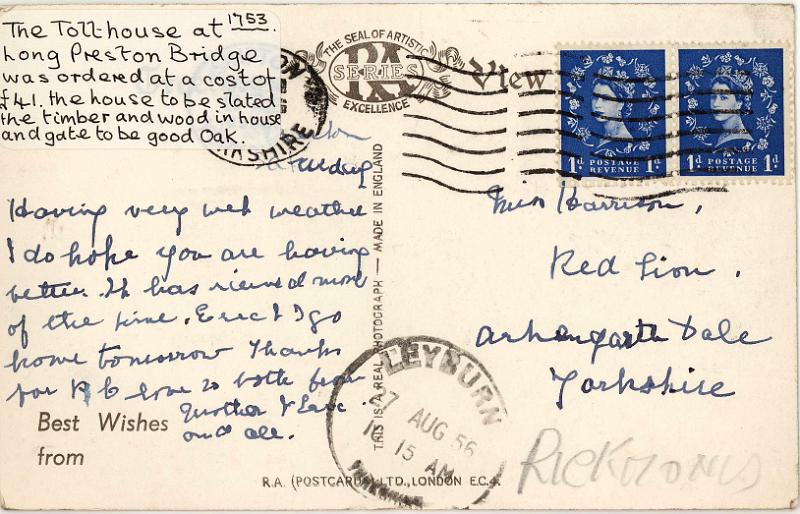 The Tollhouse at 1753.
Long Preston Bridge
was ordered at a cost of
£41. the house to be slated
the timber and wood in house
and gate to be good Oak.
THE SEAL OF ARTISTIC
RA
SERIES
EXCELLENCE
View
1d POSTAGE REVENUE 1d
1d POSTAGE REVENUE 1d
Having very wet weather
I do hope you are having
better. It has rained most
of the time. Eric & I go
home tomorrow Thanks
for P C love to both from
Mother & Eric
and all.
Best Wishes
from
THIS IS A REAL PHOTOGRAPH — MADE IN ENGLAND
Miss Harrison,
Red Lion.
Arkengarth Dale
Yorkshire
LEYBURN
AUG 56
15 AM
YORKSHIRE
R.A. (POSTCARDS) LTD., LONDON E.C.4.